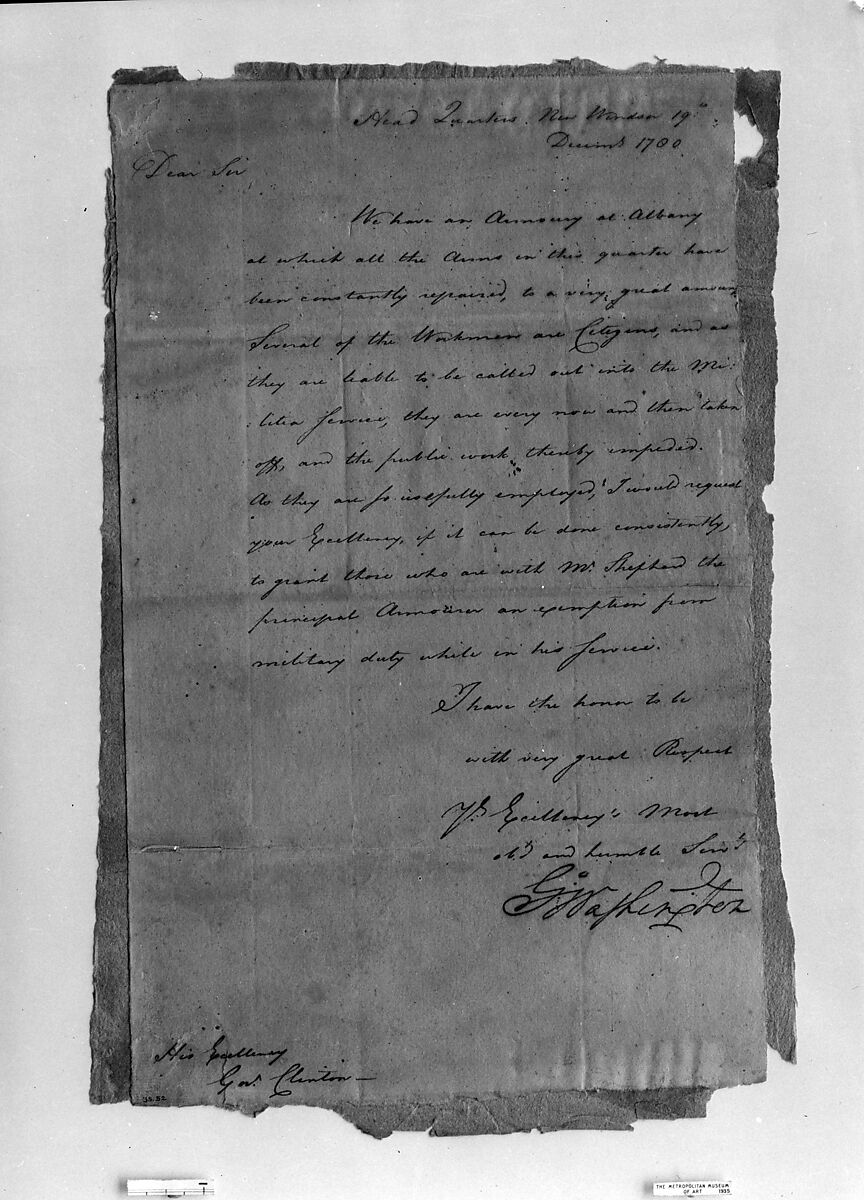 Head Quarters New Windsor 19th
Decemr 1780
Dear Sir
We have an Armoury at Albany
at which all the Arms in this quarter have
been constantly repaired, to a very great amount
Several of the Workmen are Citizens, and as
they are liable to be called out into the Mi:
:litia Service, they are every now and then taken
off, and the public work thereby impeded.
As they are so usefully employed, I would request
your Excellency, if it can be done consistently,
to grant those who are with Mr. Shepherd the
principal Armourer an exemption from
military duty while in his Service.
I have the honor to be
with very great Respect
Yr. Excellency's Most
Obt. and humble Servt
Go: Washington
His Excellency
Govr. Clinton —
35.52
THE METROPOLITAN MUSEUM
OF ART 1935